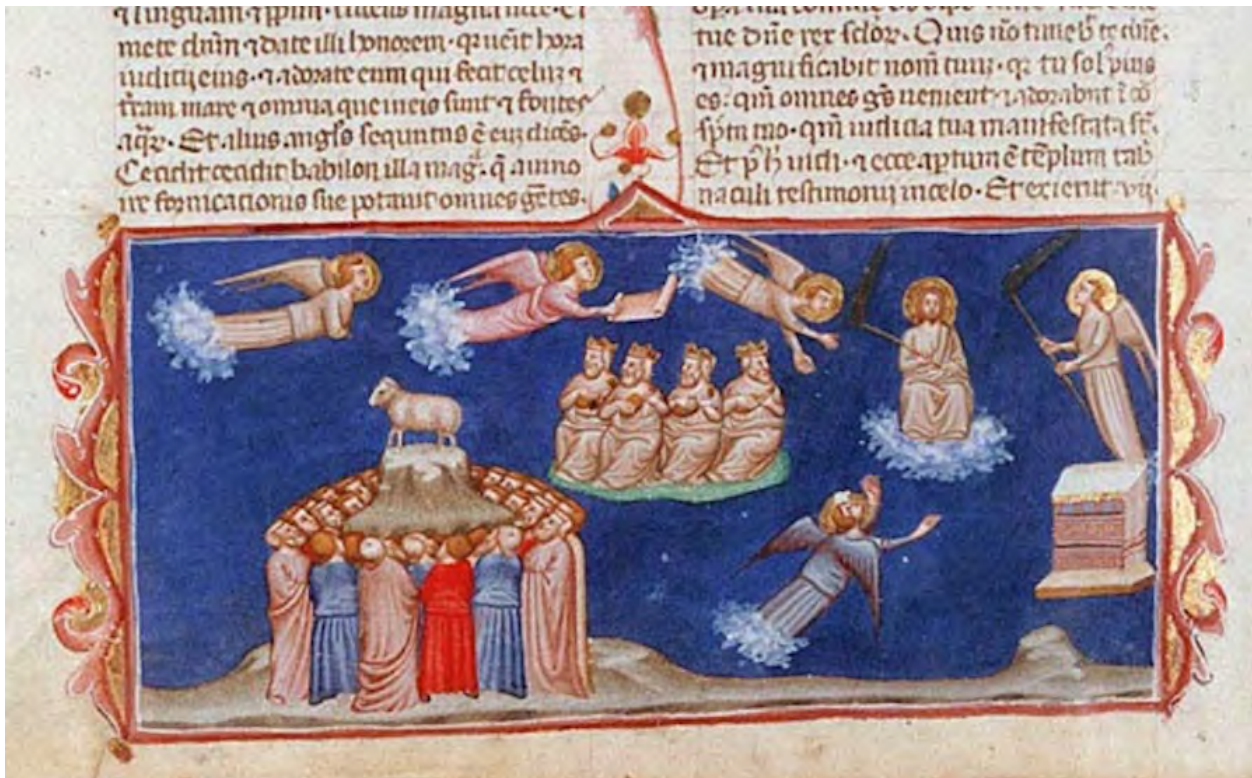 mete dnm ⁊ date illi honorem · qr uenit hora
iudicii eius · ⁊ adorate eum qui fecit celum ⁊
tram mare ⁊ omnia que in eis sunt ⁊ fontes
aqr · Et alius angls secutus ē eum dicēs ·
Cecidit cecidit babilon illa mag · q̄ a uino
ire fornicationis sue potauit omnes gētes ·
tue dñe rex sclor · Quis nō timeb te dñe ·
⁊ magnificabit nom̄ tuū · qr tu sol pius
es : qm̄ omnes gēs uenient ⁊ adorabūt ī cō
spēm tuo · qm̄ iudicia tua manifestata st̄ ·
Et p h uidi · ⁊ ecce aptum ē tēplum tab
naculi testimonii in celo · Et exierūt · vii ·